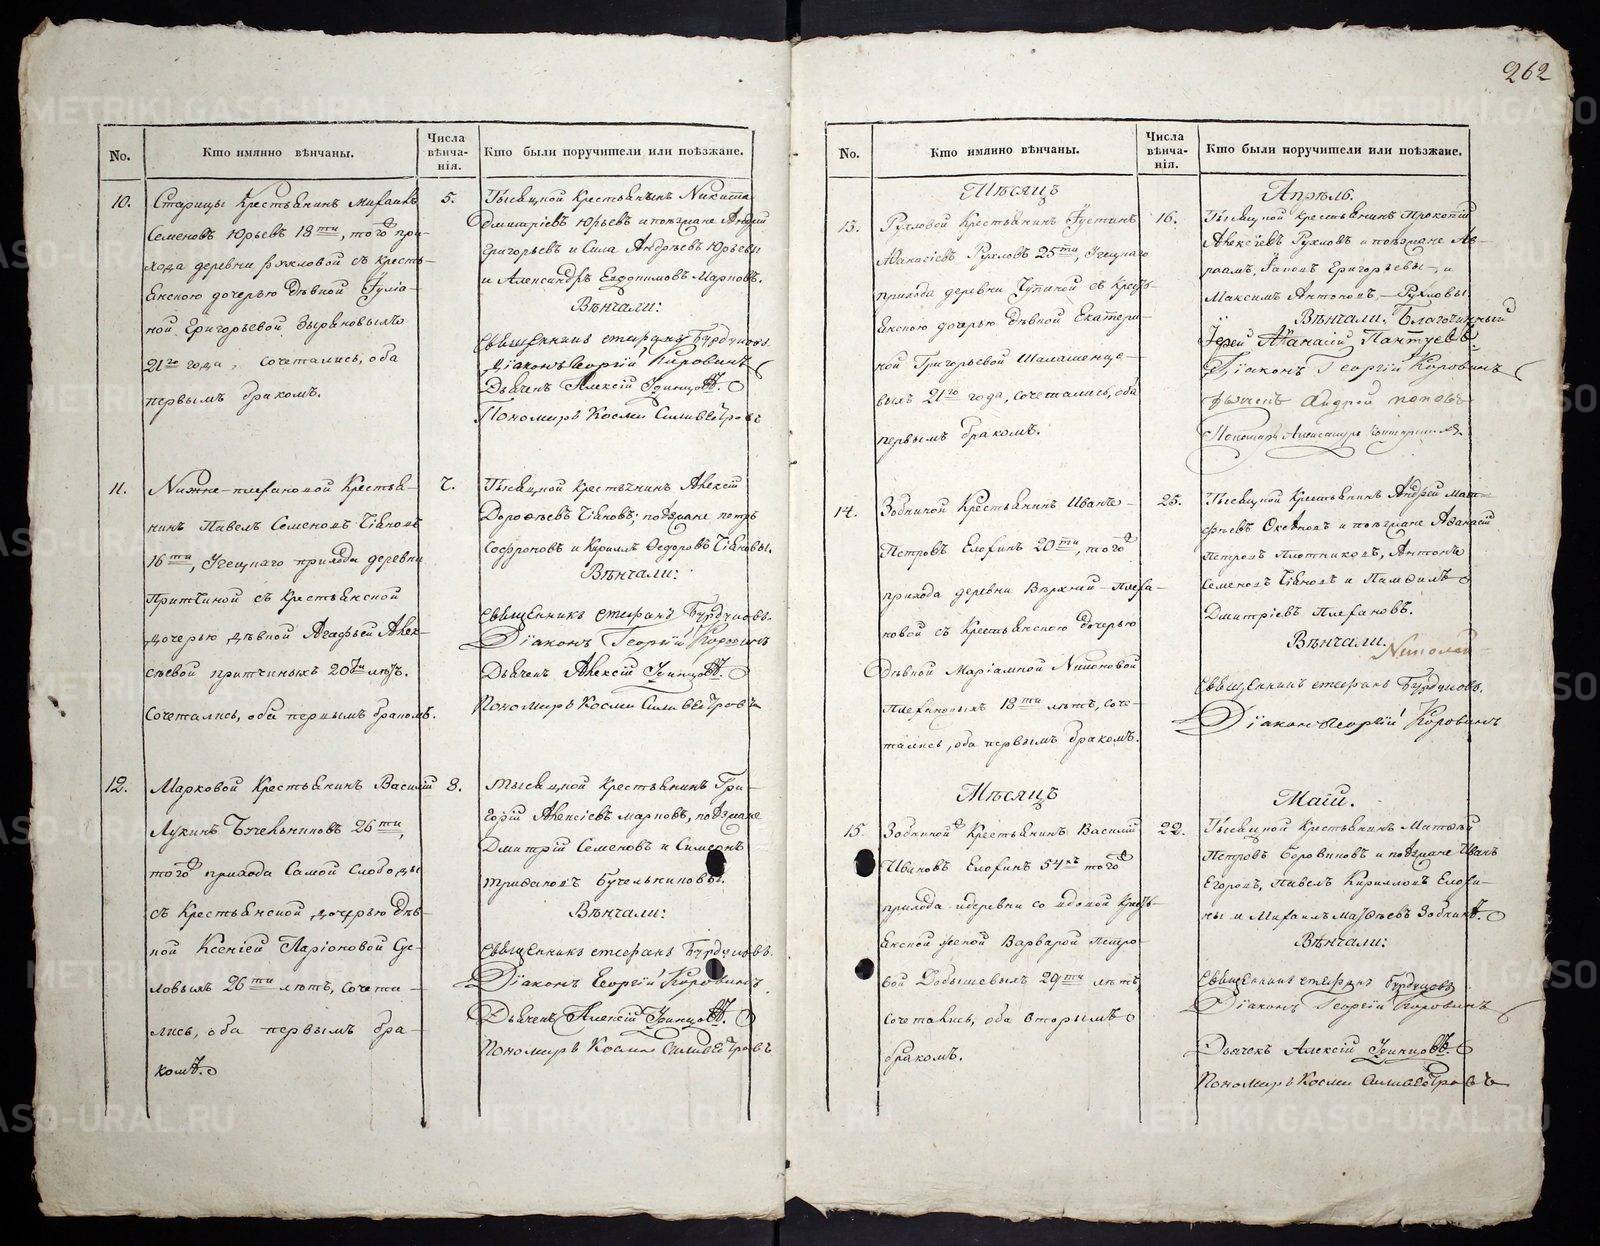 262
No.
Кто имянно вѣнчаны.
Числа вѣнча-нія.
Кто были поручители или поѣзжане.
10.
Старицы Крестьянинъ Михаилъ
Семеновъ Юрьевъ 18ти, того при-
хода деревни съ кресть-
янскою дочерью дѣвкой Гулiа-
ной Григорьевой Зыряновыхъ
21го года, сочетались, оба
первымъ бракомъ.
5.
Тысяцкой Крестьянинъ Никита
Дмитріевъ Юрьевъ и поѣзжане Андрей
Григорьевъ и Сила Андрѣевъ Юрьевы
и Александръ Евдокимовъ Марковъ.
Вѣнчали:
Священникъ Стефанъ Бурдуковъ
Діаконъ Георгій Коровинъ
Дьячекъ Алексій
Пономарь Косма Силивестровъ
11.
Нижне-плехановой Крестья-
нинъ Павелъ Семеновъ
16ти, прихода деревни
Притчиной съ крестьянской
дочерью дѣвкой Агафьей Алек-
сѣевой притчиныхъ 20ти лѣтъ.
Сочетались, оба первымъ бракомъ.
7.
Тысяцкой крестьянинъ Алексій
Дорофѣевъ поѣзжане петръ
Софроновъ и Кириллъ Ѳедоровъ
Вѣнчали:
Священникъ Стефанъ Бурдуковъ.
Діаконъ Георгій Коровинъ
Дьячекъ Алексій
Пономарь Косма Силивестровъ
12.
Марковой Крестьянинъ Василій
Лукинъ 26ти,
того прихода Самой Слободы
съ Крестьянской дочерью дѣв-
кой Ксеніей Ларіоновой Су-
ловыхъ 26ти лѣтъ, сочета-
лись, оба первымъ бра-
комъ.
8.
тысяцкой крестьянинъ Гри-
горій Алексіевъ марковъ, поѣзжане
Дмитрій Семеновъ и Симеонъ
Бучельниковы.
Вѣнчали:
Священникъ Стефанъ Бурдуковъ.
Діаконъ Георгій Коровинъ
Дьячекъ Алексій
Пономарь Косма Силивестровъ
No.
Кто имянно вѣнчаны.
Числа вѣнча-нія.
Кто были поручители или поѣзжане.
Мѣсяцъ
Апрѣль.
13.
Рухловой Крестьянинъ Густинъ
Аѳанасіевъ Рухловъ 25ти,
прихода деревни съ кресть-
янскою дочерью дѣвкой Екатери-
ной Григорьевой
выхъ 21го года, сочетались, оба
первымъ бракомъ.
16.
Тысяцкой крестьянинъ Прокопій
Алексіевъ Рухловъ и поѣзжане Ав-
раамъ, Григорьевы, и
Максимъ Антоновъ, Рухловы.
Вѣнчали. Благочинный
Іерей Аѳанасій Пантуевъ.
Діаконъ Георгій Коровинъ
дьячекъ Андрей поповъ
Пономарь Александръ
14.
Зобниной Крестьянинъ Иванъ
Петровъ Елохинъ 20ти, того
прихода деревни Верхней-плеха-
новой съ Крестьянскою дочерью
Дѣвкой Маріамной Никоновой
плехановыхъ 18ти лѣтъ, соче-
тались, оба первымъ бракомъ.
25.
Тысяцкой крестьянинъ Андрей Мат-
фѣевъ и поѣзжане Аѳанасій
Петровъ Плотниковъ, Антонъ
Семеновъ и Памфилъ
Дмитріевъ Плехановъ.
Вѣнчали.
Священникъ Стефанъ Бурдуковъ.
Діаконъ Георгій Коровинъ
Мѣсяцъ
Маій.
15.
Зобниной Крестьянинъ Василій
Ивановъ Елохинъ 54хъ того
прихода и деревни со вдовой Кресть-
янской женой Варварой Петро-
вой 29ти лѣтъ
сочетались, оба вторымъ
бракомъ.
22.
Тысяцкой Крестьянинъ Матѳей
Петровъ Боровиковъ и поѣзжане Иванъ
Егоровъ, Павелъ Кирилловъ Елохи-
ны и Михаилъ Матѳѣевъ Зобнинъ.
Вѣнчали:
Священникъ Стефанъ Бурдуковъ
Діаконъ Георгій Коровинъ
Дьячекъ Алексій
Пономарь Косма Силивестровъ
METRIKI.GASO-URAL.RU